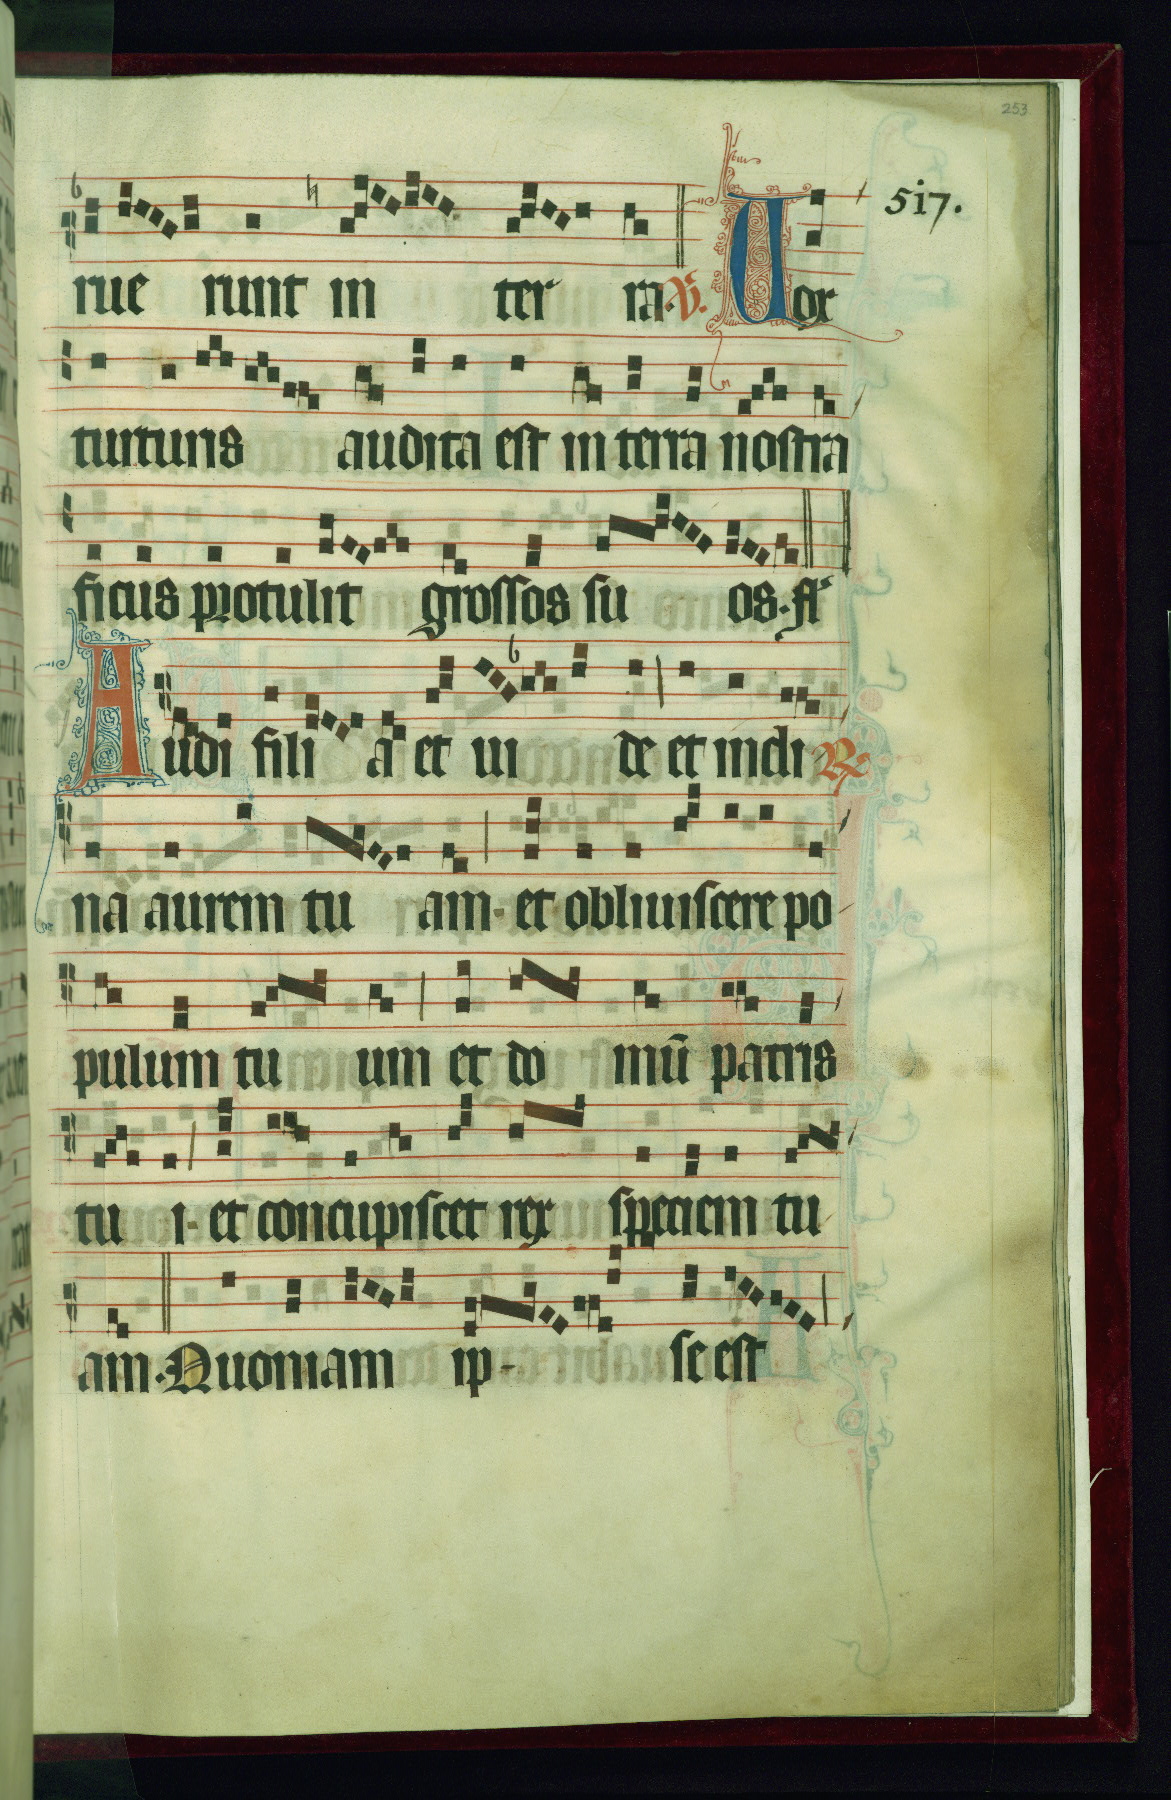 253
517.
rue runt in ter ra. V. Vox
turturis audita est in terra nostra
ficus protulit grossos su os. fl
Audi fili a et ui de et incli R
na aurem tu am. et obliuiscere po
pulum tu um et do mū patris
tu i. et concupiscet rex speciem tu
am. Quoniam ip- se est